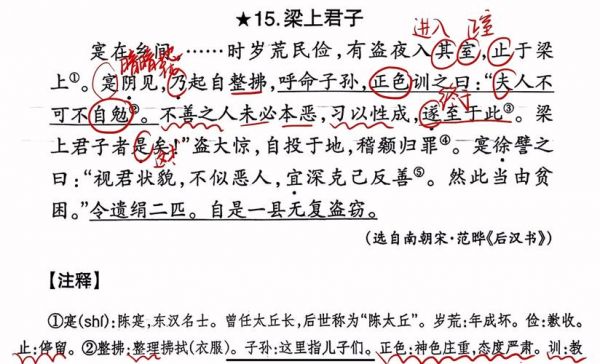 ★15.梁上君子
进入 正室
寔在乡间……时岁荒民俭，有盗夜入其室，止于梁
暗暗地
上①。寔阴见，乃起自整拂，呼命子孙，正色训之曰：“夫人不
终于
可不自勉②。不善之人未必本恶，习以性成，遂至于此③。梁
上君子者是矣！”盗大惊，自投于地，稽颡归罪④。寔徐譬之
曰：“视君状貌，不似恶人，宜深克己反善⑤。然此当由贫
困。”令遗绢二匹。自是一县无复盗窃。
（选自南朝宋·范晔《后汉书》）
【注释】
①寔(shí)：陈寔，东汉名士。曾任太丘长，后世称为“陈太丘”。岁荒：年成坏。俭：歉收。
止：停留。②整拂：整理拂拭（衣服）。子孙：这里指儿子们。正色：神色庄重，态度严肃。训：教